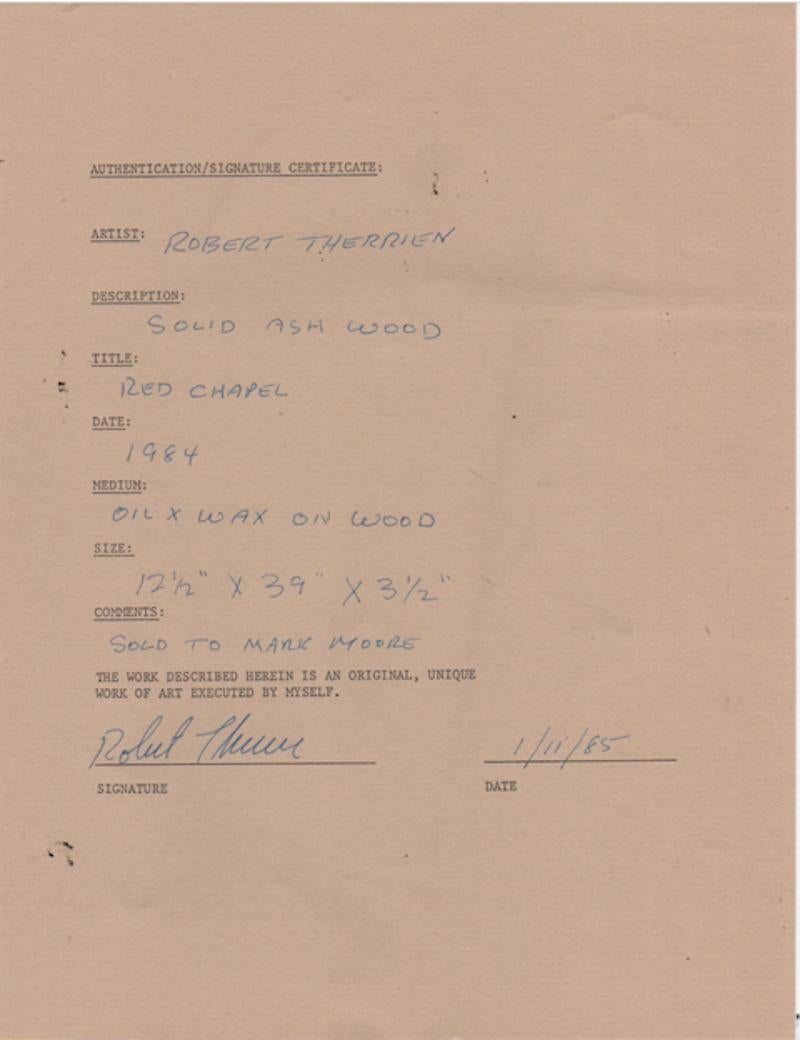 AUTHENTICATION/SIGNATURE CERTIFICATE:
ARTIST: ROBERT THERRIEN
DESCRIPTION:
SOLID ASH WOOD
TITLE:
RED CHAPEL
DATE:
1984
MEDIUM:
OIL X WAX ON WOOD
SIZE:
12 1/2" X 39" X 3 1/2"
COMMENTS:
SOLD TO MARK MOORE
THE WORK DESCRIBED HEREIN IS AN ORIGINAL, UNIQUE
WORK OF ART EXECUTED BY MYSELF.
Robert Therrien 1/11/85
SIGNATURE DATE